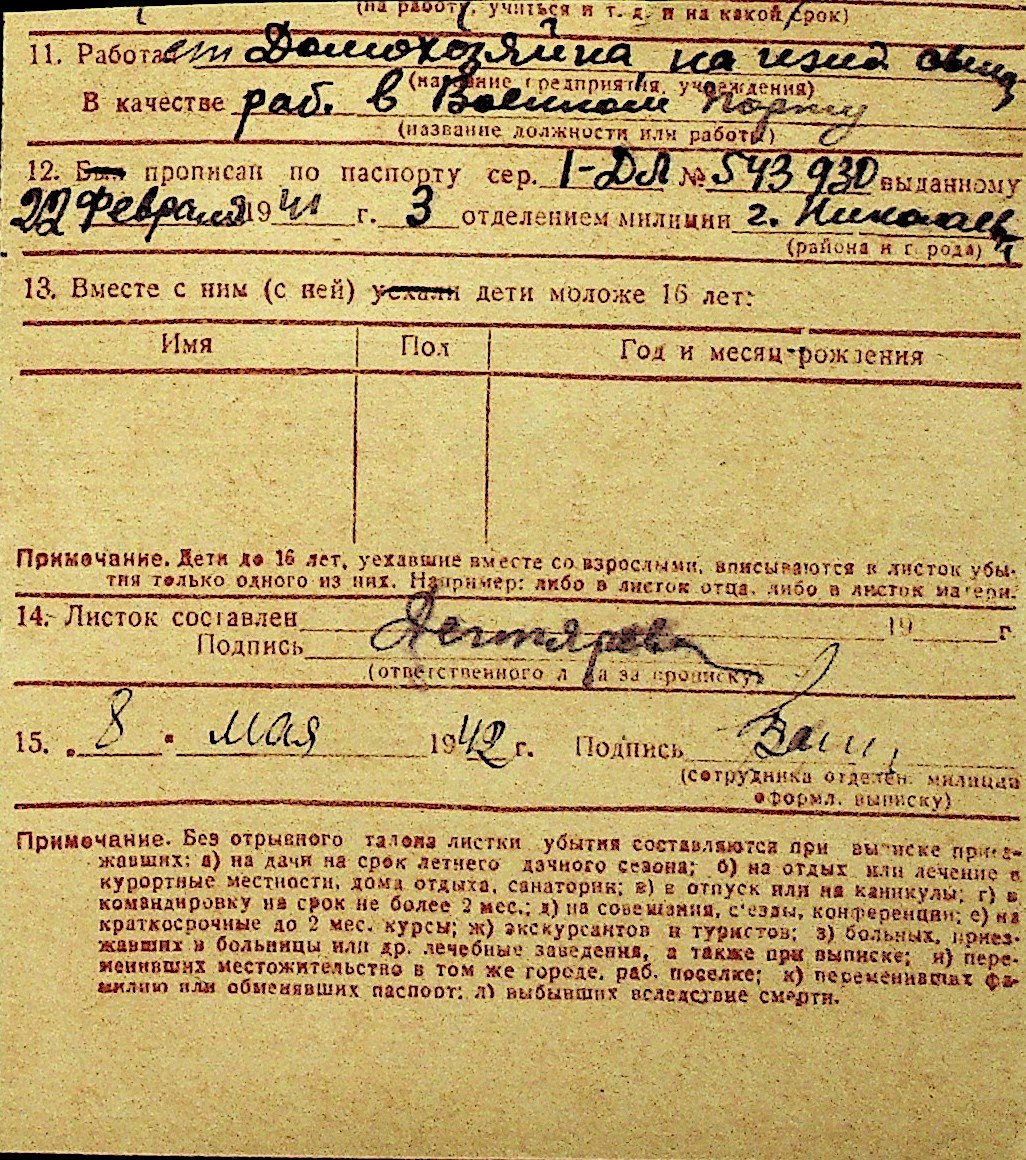 (на работу, учиться и т. д. и на какой срок)
11. Работает Домохозяйка на
(название предприятия, учреждения)
В качестве раб. в Военном порту
(название должности или работы)
12. Был прописан по паспорту сер. 1-ДЛ № 543930 выданному
22 февраля 1941 г. 3 отделением милиции г. Николаев
(района и города)
13. Вместе с ним (с ней) уехали дети моложе 16 лет:
Имя Пол Год и месяц рождения
Примечание. Дети до 16 лет, уехавшие вместе со взрослыми, вписываются в листок убы-
тия только одного из них. Например: либо в листок отца, либо в листок матери.
14. Листок составлен 19 г.
Подпись Дегтярева
(ответственного лица за прописку)
15. „8" мая 1942 г. Подпись
(сотрудника отделен. милиции
оформл. выписку)
Примечание. Без отрывного талона листки убытия составляются при выписке приез-
жавших: а) на дачи на срок летнего дачного сезона; б) на отдых или лечение в
курортные местности, дома отдыха, санатории; в) в отпуск или на каникулы; г) в
командировку на срок не более 2 мес.; д) на совещания, съезды, конференции; е) на
краткосрочные до 2 мес. курсы; ж) экскурсантов и туристов; з) больных, приез-
жавших в больницы или др. лечебные заведения, а также при выписке; и) пере-
менивших местожительство в том же городе, раб. поселке; к) переменивших фа-
милию или обменявших паспорт; л) выбывших вследствие смерти.